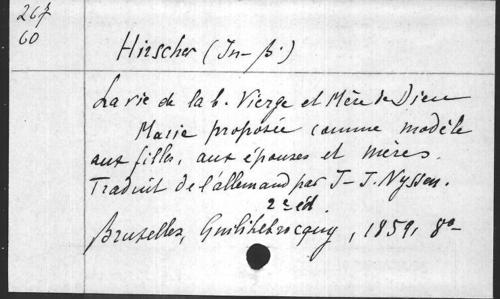 267
60
Hirscher (Jn-B.)
La vie de la b. Vierge et Mère de Dieu
Marie proposée comme modèle
aux filles, aux épouses et mères.
Traduit de l'allemand par J-J. Nyssen.
2e éd.
Bruxelles, 1859, 8o